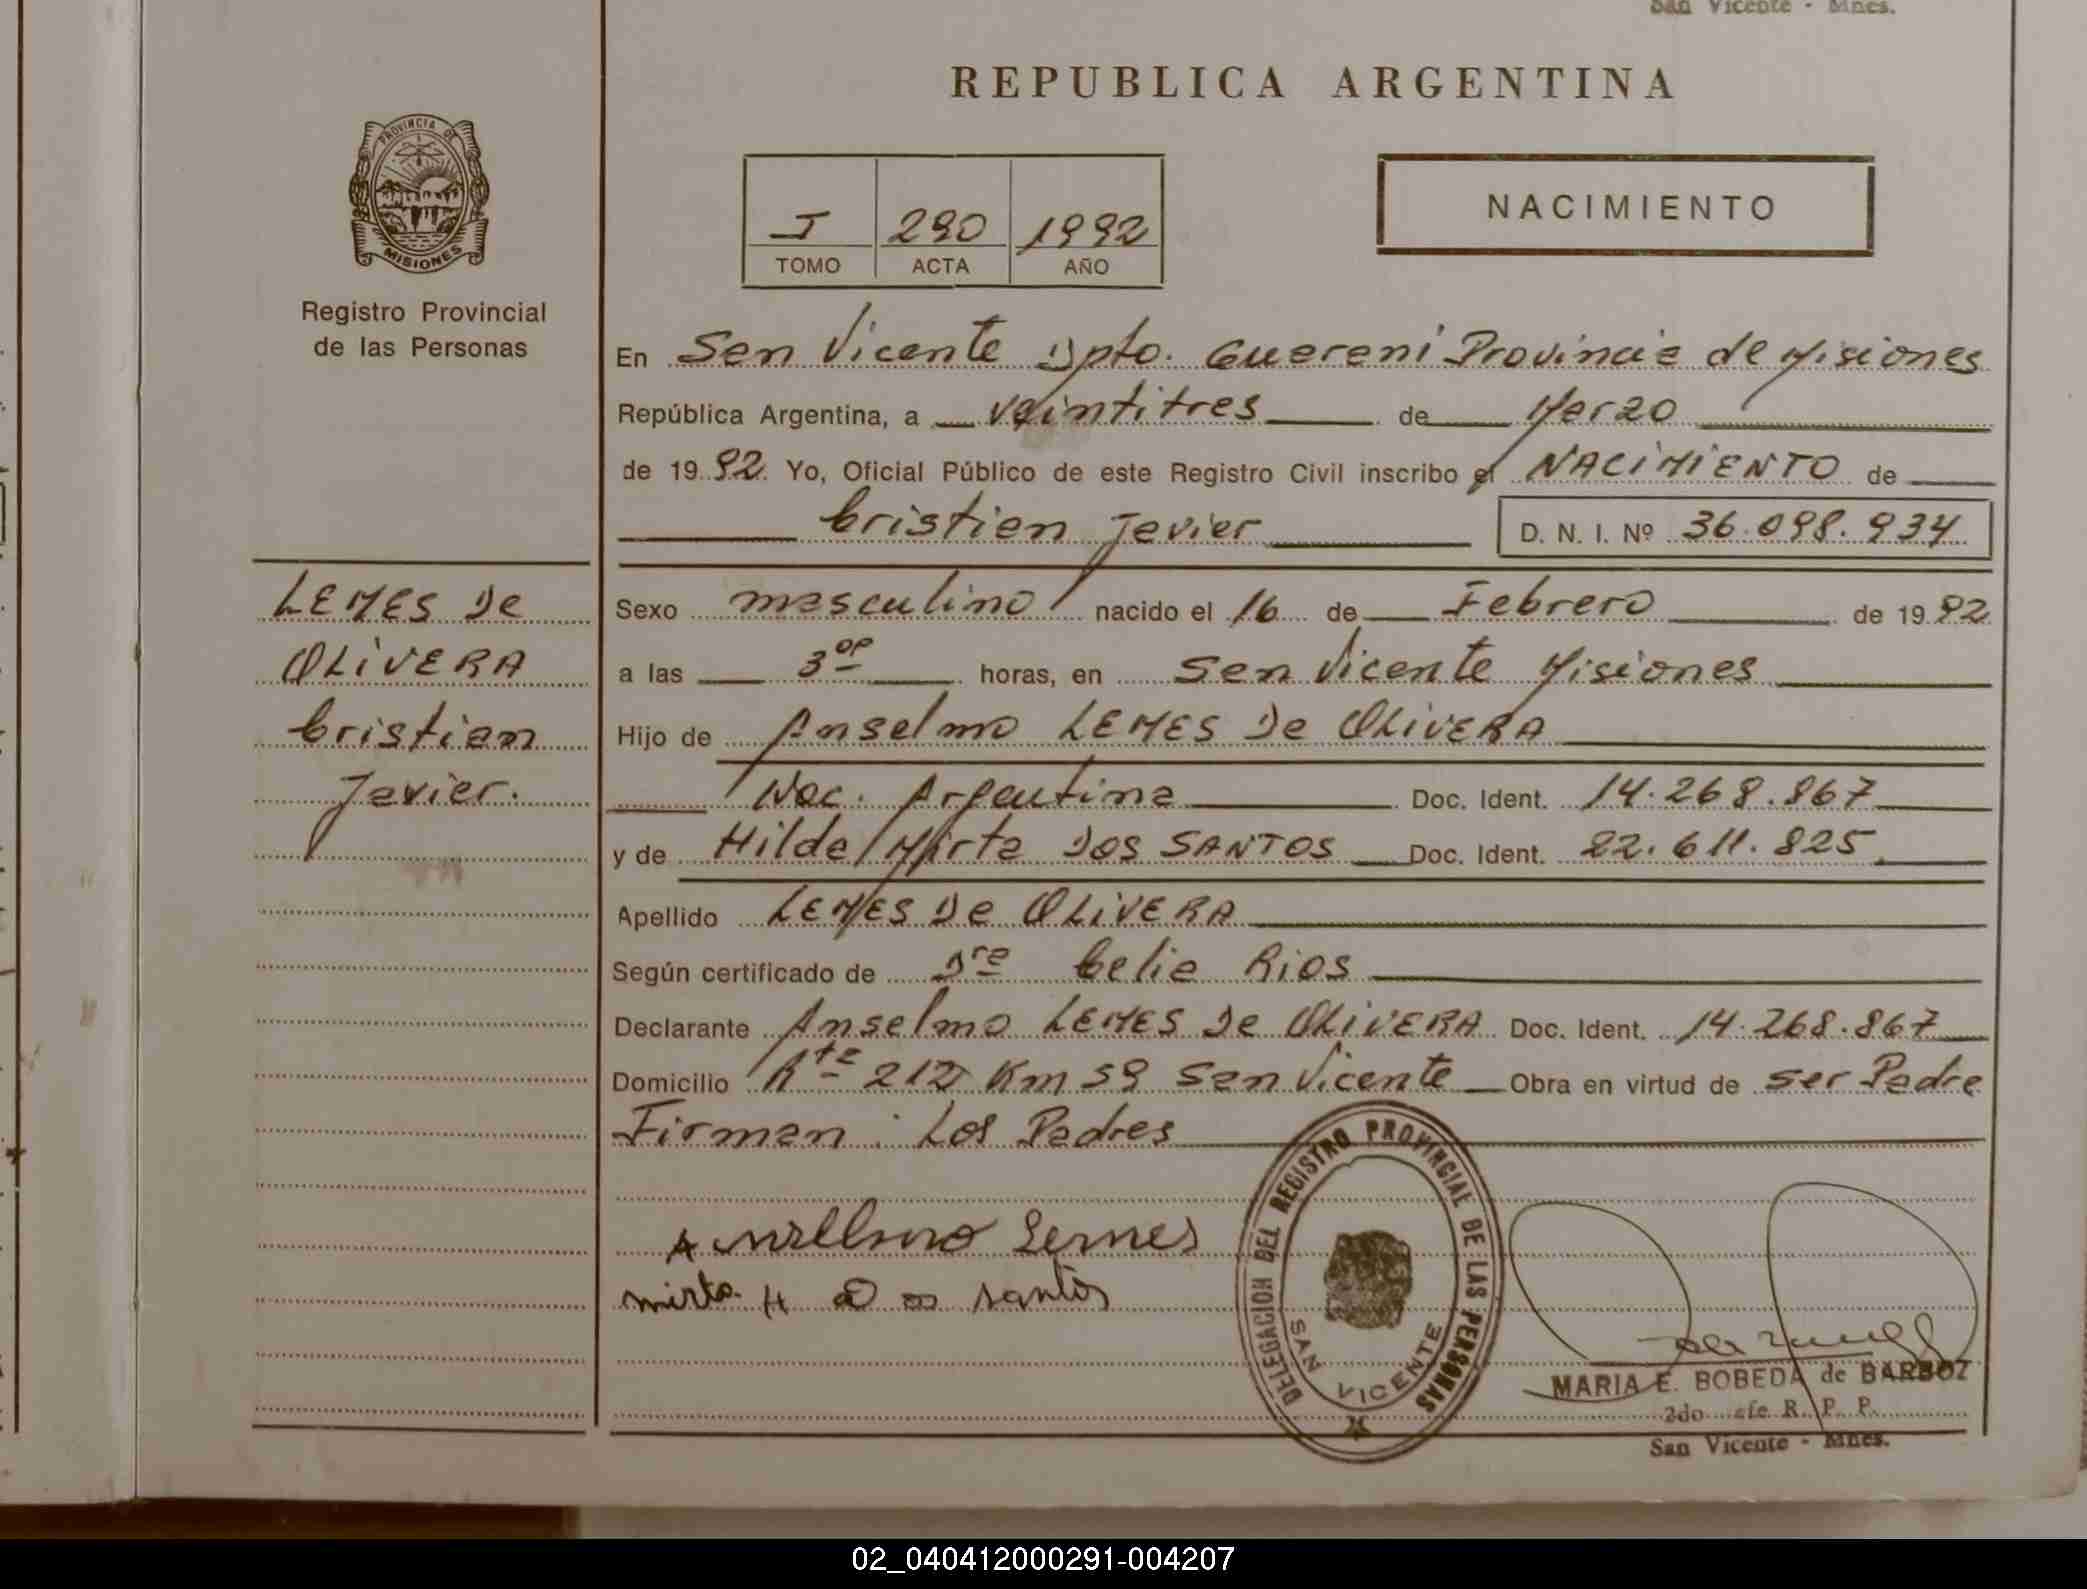 San Vicente - Mnes.
REPUBLICA ARGENTINA
PROVINCIA DE
MISIONES
Registro Provincial
de las Personas
I 290 1992
TOMO ACTA AÑO
NACIMIENTO
En San Vicente Dpto. Guarani Provincia de Misiones
República Argentina, a veintitres de Marzo
de 1992. Yo, Oficial Público de este Registro Civil inscribo el NACIMIENTO de
Cristian Javier D. N. I. Nº 36.098.934
LEMES De
OLIVERA
Cristian
Javier.
Sexo masculino nacido el 16 de Febrero de 1992
a las 3 horas, en San Vicente Misiones
Hijo de Anselmo LEMES De OLIVERA
Nac. Argentina Doc. Ident. 14.268.867
y de Hilda Mirta DOS SANTOS Doc. Ident. 22.611.825
Apellido LEMES De OLIVERA
Según certificado de Dra Celia Rios
Declarante Anselmo LEMES De OLIVERA Doc. Ident. 14.268.867
Domicilio Rta 212 Km 59 San Vicente Obra en virtud de ser Padre
Firman: Los Padres
Lemes
mirta H dos santos
DELEGACION DEL REGISTRO PROVINCIAL DE LAS PERSONAS
SAN VICENTE
MARIA E. BOBEDA de BARBOZ
2do R. P. P.
San Vicente - Mnes.
02_040412000291-004207